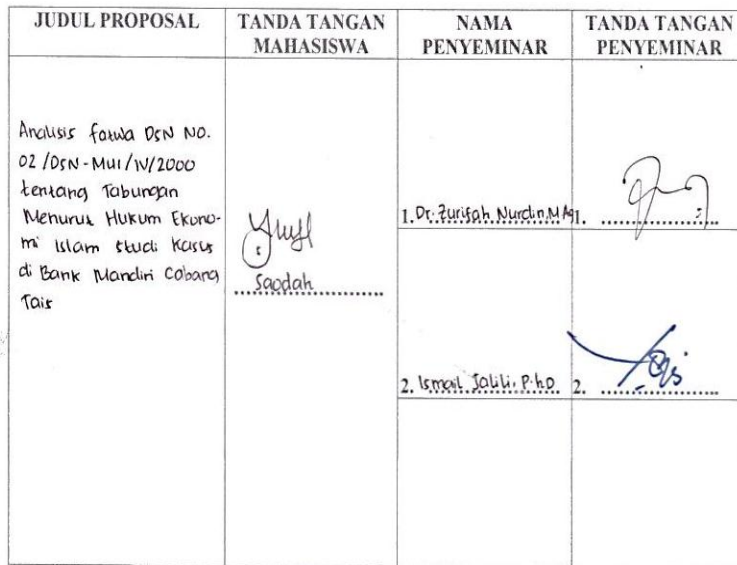 JUDUL PROPOSAL
TANDA TANGAN
MAHASISWA
NAMA
PENYEMINAR
TANDA TANGAN
PENYEMINAR
Analisis fatwa DSN NO.
02/DSN-MUI/IV/2000
tentang Tabungan
Menurut Hukum Ekono-
mi Islam studi kasus
di Bank Mandiri Cabang
Tais
Saodah
1. Dr. Zurifah Nurdin, M.Ag
1.
2. Ismail Jalili, P.hD
2.